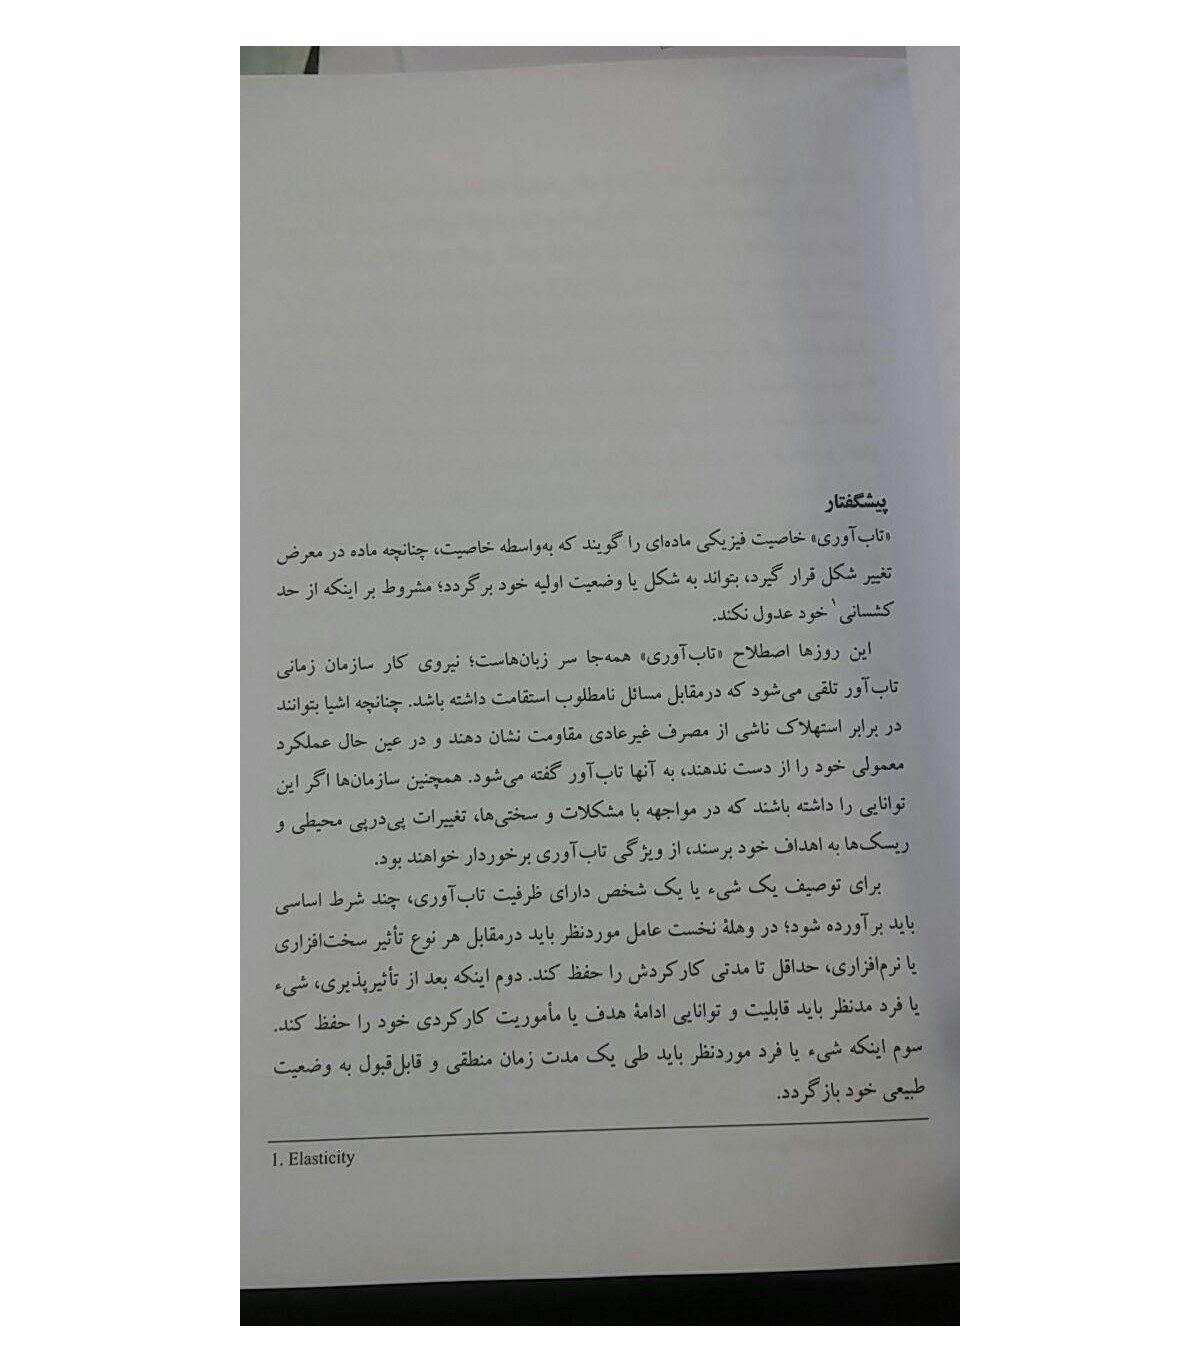 پیشگفتار
«تاب‌آوری» خاصیت فیزیکی ماده‌ای را گویند که به‌واسطه خاصیت، چنانچه ماده در معرض
تغییر شکل قرار گیرد، بتواند به شکل یا وضعیت اولیه خود برگردد؛ مشروط بر اینکه از حد
کشسانی۱ خود عدول نکند.
این روزها اصطلاح «تاب‌آوری» همه‌جا سر زبان‌هاست؛ نیروی کار سازمان زمانی
تاب‌آور تلقی می‌شود که درمقابل مسائل نامطلوب استقامت داشته باشد. چنانچه اشیا بتوانند
در برابر استهلاک ناشی از مصرف غیرعادی مقاومت نشان دهند و در عین حال عملکرد
معمولی خود را از دست ندهند، به آنها تاب‌آور گفته می‌شود. همچنین سازمان‌ها اگر این
توانایی را داشته باشند که در مواجهه با مشکلات و سختی‌ها، تغییرات پی‌درپی محیطی و
ریسک‌ها به اهداف خود برسند، از ویژگی تاب‌آوری برخوردار خواهند بود.
برای توصیف یک شیء یا یک شخص دارای ظرفیت تاب‌آوری، چند شرط اساسی
باید برآورده شود؛ در وهلهٔ نخست عامل موردنظر باید درمقابل هر نوع تأثیر سخت‌افزاری
یا نرم‌افزاری، حداقل تا مدتی کارکردش را حفظ کند. دوم اینکه بعد از تأثیرپذیری، شیء
یا فرد مدنظر باید قابلیت و توانایی ادامهٔ هدف یا مأموریت کارکردی خود را حفظ کند.
سوم اینکه شیء یا فرد موردنظر باید طی یک مدت زمان منطقی و قابل‌قبول به وضعیت
طبیعی خود بازگردد.
1. Elasticity